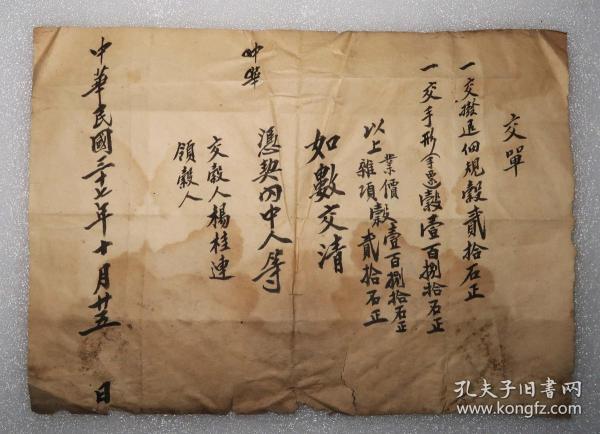 交單
一交撥退佃規穀貳拾石正
一交手形 穀壹百捌拾石正
以上業價穀壹百捌拾石正
雜項穀貳拾石正
如數交清
憑契內中人等
中華
交穀人楊桂連
領穀人
中華民國三十七年十月廿五日
孔夫子旧书网
www.kongfz.com